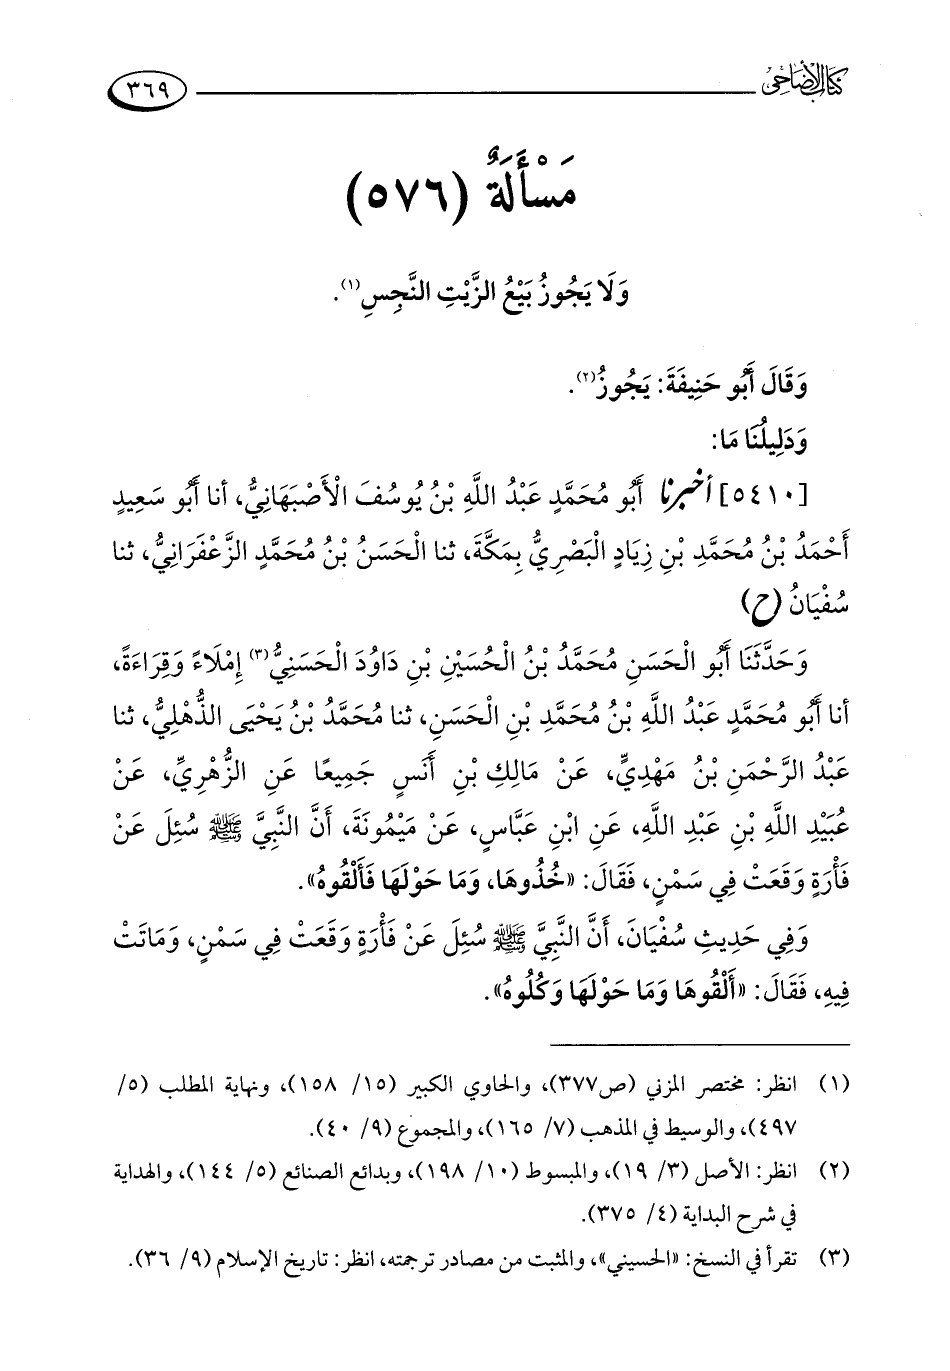 كتاب الأضاحي
٣٦٩
مَسْأَلَةٌ (٥٧٦)
وَلَا يَجُوزُ بَيْعُ الزَّيْتِ النَّجِسِ(١).
وَقَالَ أَبُو حَنِيفَةَ: يَجُوزُ(٢).
وَدَلِيلُنَا مَا:
[٥٤١٠] أخبرنا أَبُو مُحَمَّدٍ عَبْدُ اللَّهِ بْنُ يُوسُفَ الْأَصْبَهَانِيُّ، أنا أَبُو سَعِيدٍ
أَحْمَدُ بْنُ مُحَمَّدِ بْنِ زِيَادٍ الْبَصْرِيُّ بِمَكَّةَ، ثنا الْحَسَنُ بْنُ مُحَمَّدٍ الزَّعْفَرَانِيُّ، ثنا
سُفْيَانُ (ح)
وَحَدَّثَنَا أَبُو الْحَسَنِ مُحَمَّدُ بْنُ الْحُسَيْنِ بْنِ دَاوُدَ الْحَسَنِيُّ(٣) إِمْلَاءً وَقِرَاءَةً،
أنا أَبُو مُحَمَّدٍ عَبْدُ اللَّهِ بْنُ مُحَمَّدِ بْنِ الْحَسَنِ، ثنا مُحَمَّدُ بْنُ يَحْيَى الذُّهْلِيُّ، ثنا
عَبْدُ الرَّحْمَنِ بْنُ مَهْدِيٍّ، عَنْ مَالِكِ بْنِ أَنَسٍ جَمِيعًا عَنِ الزُّهْرِيِّ، عَنْ
عُبَيْدِ اللَّهِ بْنِ عَبْدِ اللَّهِ، عَنِ ابْنِ عَبَّاسٍ، عَنْ مَيْمُونَةَ، أَنَّ النَّبِيَّ ﷺ سُئِلَ عَنْ
فَأْرَةٍ وَقَعَتْ فِي سَمْنٍ، فَقَالَ: «خُذُوهَا، وَمَا حَوْلَهَا فَأَلْقُوهُ».
وَفِي حَدِيثِ سُفْيَانَ، أَنَّ النَّبِيَّ ﷺ سُئِلَ عَنْ فَأْرَةٍ وَقَعَتْ فِي سَمْنٍ، وَمَاتَتْ
فِيهِ، فَقَالَ: «أَلْقُوهَا وَمَا حَوْلَهَا وَكُلُوهُ».
(١) انظر: مختصر المزني (ص٣٧٧)، والحاوي الكبير (١٥/ ١٥٨)، ونهاية المطلب (٥/
٤٩٧)، والوسيط في المذهب (٧/ ١٦٥)، والمجموع (٩/ ٤٠).
(٢) انظر: الأصل (٣/ ١٩)، والمبسوط (١٠/ ١٩٨)، وبدائع الصنائع (٥/ ١٤٤)، والهداية
في شرح البداية (٤/ ٣٧٥).
(٣) تقرأ في النسخ: «الحسيني»، والمثبت من مصادر ترجمته، انظر: تاريخ الإسلام (٩/ ٣٦).